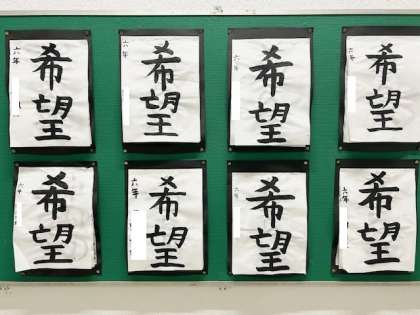 希望
六年
希望
六年
希望
六年
希望
六年
希望
六年
希望
六年
希望
六年
希望
六年